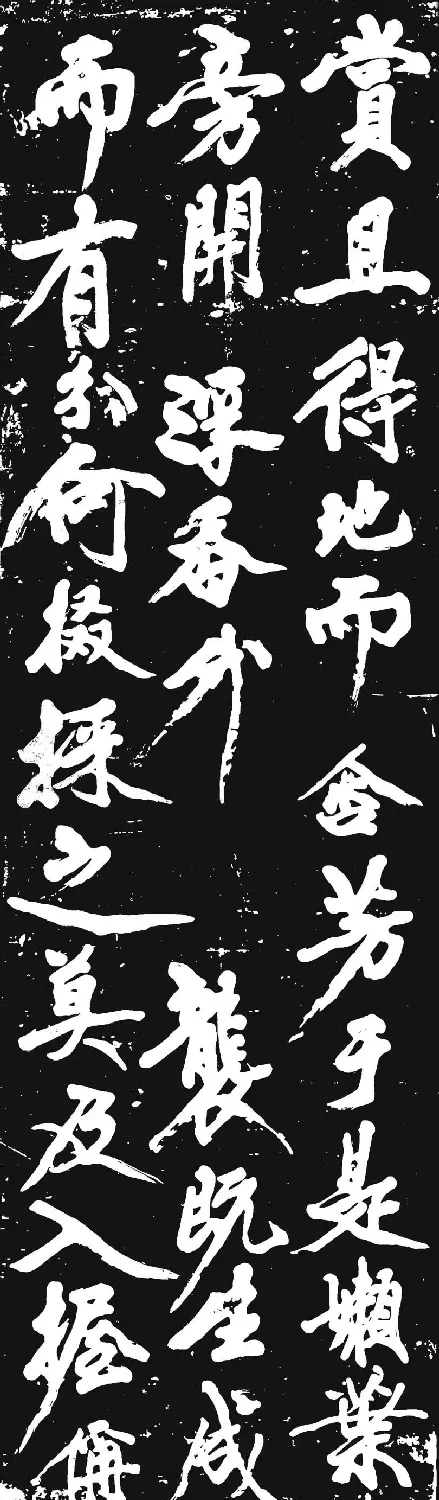 賞且得地而含芳于是嬾葉
旁開浮香外襲既生成
而有分何掇採之莫及入握稱